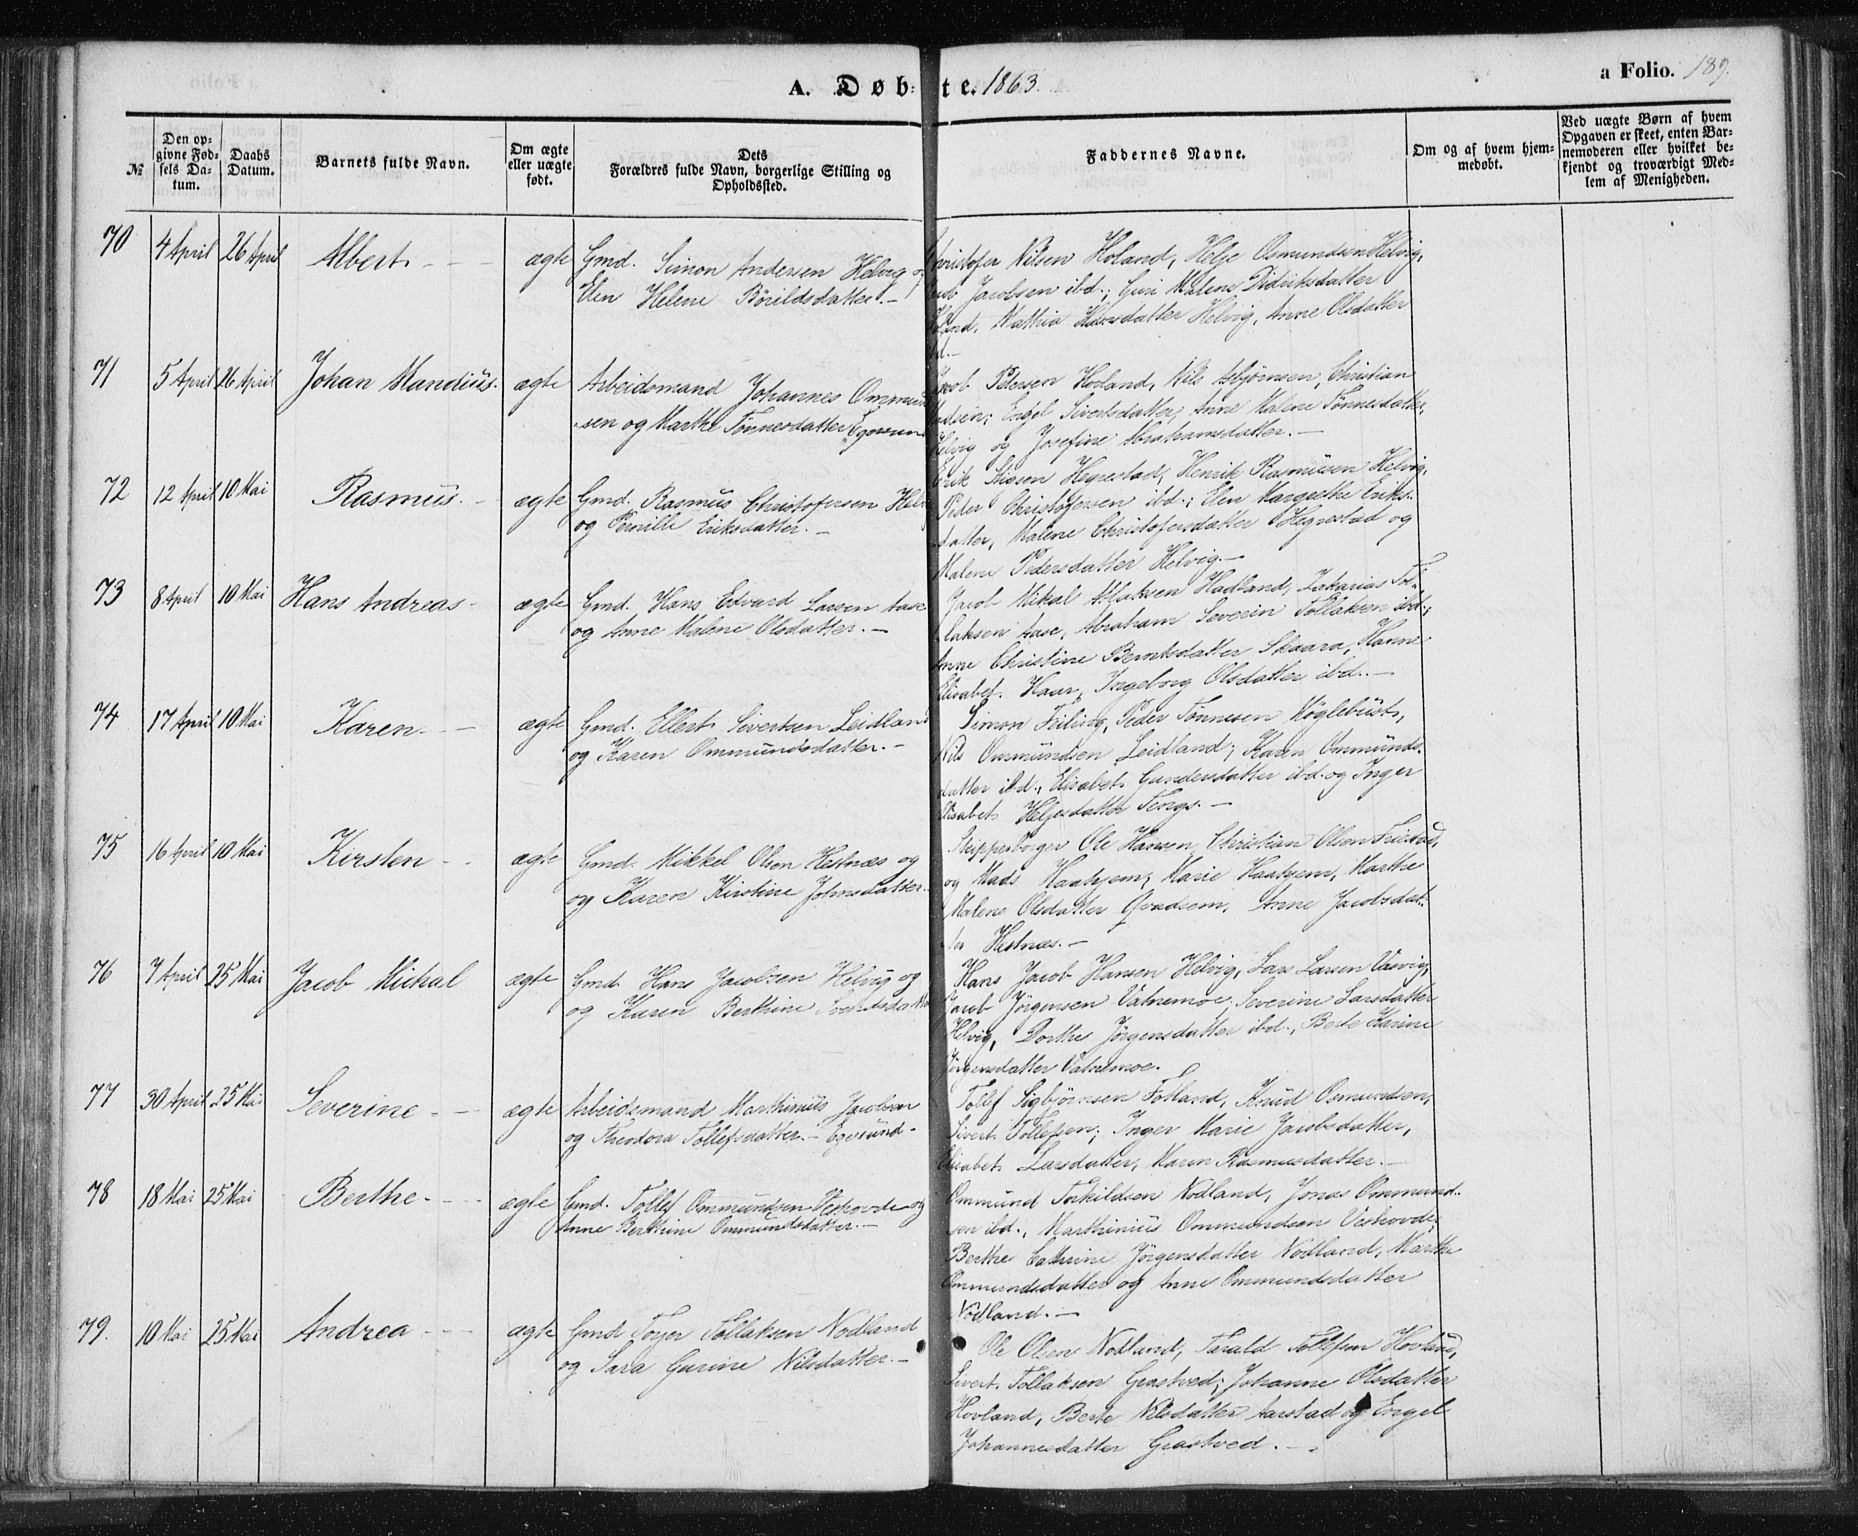 A. Døbte. 1863.
a Folio. 189.
№
Den op-
givne Fød-
sels Da-
tum.
Daabs
Datum.
Barnets fulde Navn.
Om ægte
eller uægte
født.
Dets
Forældres fulde Navn, borgerlige Stilling og
Opholdssted.
Faddernes Navne.
Om og af hvem hjem-
medøbt.
Ved uægte Børn af hvem
Opgaven er skeet, enten Bar-
nemoderen eller hvilket be-
kjendt og troværdigt Med-
lem af Menigheden.
70 4 April 26 April Albert. ægte
Gmd. Simon Andersen Helvig
Elen Helene Börildsdatter. -
Christofer Nilsen Holand, Helje Osmundsen Helvig,
Jacobsen ibd.; Guri Malene Didriksdatter
Mathia Hansdatter Helvig, Anne Olsdatter
71 5 April 26 April Johan Mandius. ægte
Arbeidsmand Johannes
sen og Marthe Tönnesdatter
Petersen Hovland, Nils Asbjörnsen, Christian
Engel Sivertsdatter, Anne Malene Tönnesdatter,
Helvig og Josefine Abrahamsdatter. -
72 12 April 10 Mai Rasmus. - ægte
Gmd. Rasmus Christofersen
og Pernille Eriksdatter. -
Erik Hegrestad, Henrik Rasmusen Helvig,
Peder Christofersen ibd.; Elen Margrethe Eriks-
datter, Malene Christofersdatter Hegrestad og
Malene Pedersdatter Helvig -
73 8 April 10 Mai Hans Andreas - ægte
Gmd. Hans Edvard Larsen Aase
og Anne Malene Olsdatter. -
Jacob Mikal Hadland, Zakarias Tol-
laksen Aase, Abraham Severin Tollaksen ibd.;
Anne Christine Berntsdatter Skaara, Hanne
Elisabet Ingeborg Olsdatter ibd. -
74 17 April 10 Mai Karen. - ægte
Gmd. Ellert Sivertsen Leidland
og Karen Ommundsdatter. -
Simon Feiling, Peder Tönnesen Möglebust,
Nils Ommundsen Leidland; Karen Ommunds-
datter ibd., Elisabet Gundersdatter ibd. og Inger
Elisabet Heljesdatter Tengs. -
75 16 April 10 Mai Kirsten - - ægte
Gmd. Mikkel Olsen Hestnæs og
og Karen Kirstine Johnsdatter.
Skipperborger Ole Hansen, Christian Olsen
og Mads Haahjem; Marie Haahjem, Marthe
Malene Olsdatter Qvadsem, Anne Jacobsdat-
ter Hestnæs. -
76 7 April 25 Mai Jacob Michal ægte
Gmd. Hans Jacobsen Helvig og
og Karen Berthine
Hans Jacob Hansen Helvig, Lars Larsen
Jacob Jörgensen Vatnemoe, Severine Larsdatter
Helvig, Dorthe Jörgensdatter ibd., Berte Karine
Jörgensdatter Vatnemoe.
77 30 April 25 Mai Severine - - ægte
Arbeidsmand Marthinius Jacobsen
og Theodora Tollefsdatter. - Egersund -
Tollef Sigbörnsen Folland, Knud Osmundsen,
Sivert Tollefsen; Inger Marie Jacobsdatter,
Elisabet Larsdatter, Maren Rasmusdatter. -
78 18 Mai 25 Mai Berthe. - - ægte
Gmd. Tollef Ommundsen Veshovde og
Anne Berthine Ommundsdatter. -
Ommund Torkildsen Nodland, Jonas Ommund-
sen ibd., Marthinius Ommundsen Veshovde;
Berthe Cathrine Jörgensdatter Nodland, Marthe
Ommundsdatter og Anne Ommundsdatter
Nodland. -
79. 10 Mai 25 Mai Andrea - - ægte
Gmd. Torger Tollaksen Nodland
og Sara Gurine Nilsdatter. -
Ole Olsen Nodland, Tarald Tollefsen Hovland,
Sivert Tollaksen Grastved; Johanne Olsdatter
Hovland, Berte Nilsdatter Aarstad og Engel
Johannesdatter Grastved. -